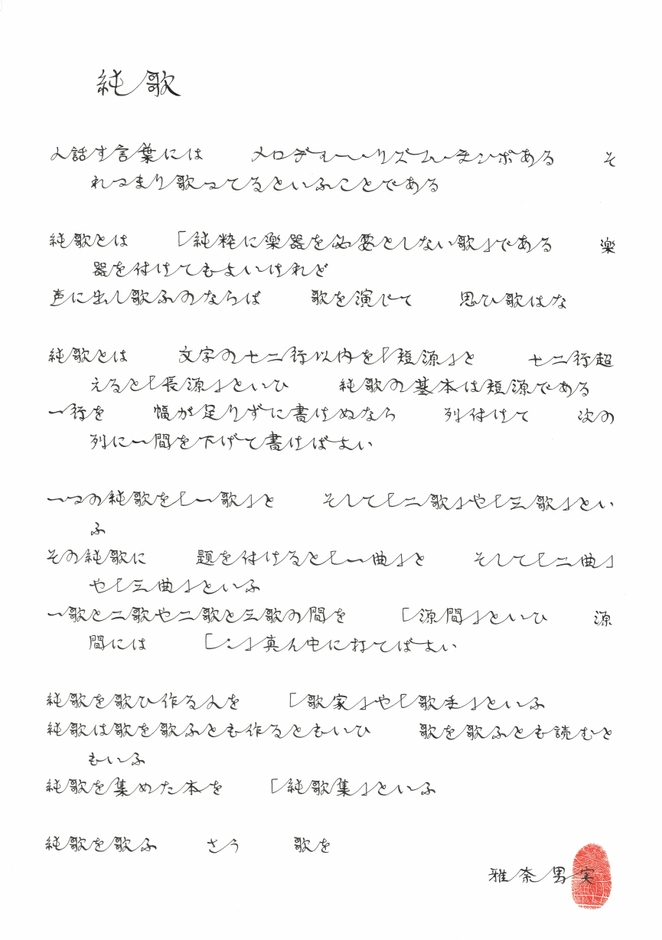 純歌
人話す言葉には　メロディー・リズム・テンポある　そ
れつまり歌つてるといふことである
純歌とは　「純粋に楽器を必要としない歌」である　楽
器を付けてもよいけれど
声に出し歌ふのならば　歌を演じて　思ひ歌はな
純歌とは　文字の七二行以内を「短源」と　七二行超
えると「長源」といひ　純歌の基本は短源である
一行を　幅が足りずに書けぬなら　列付けて　次の
列に一間を下げて書けばよい
一つの純歌を「一歌」と　そして「二歌」や「三歌」とい
ふ
その純歌に　題を付けると「一曲」と　そして「二曲」
や「三曲」といふ
一歌と二歌や二歌と三歌の間を　「源間」といひ　源
間には　「・」真ん中に打てばよい
純歌を歌ひ作る人を　「歌家」や「歌手」といふ
純歌は歌を歌ふとも作るともいひ　歌を歌ふとも読むと
もいふ
純歌を集めた本を　「純歌集」といふ
純歌を歌ふ　さう　歌を
雅奈男実